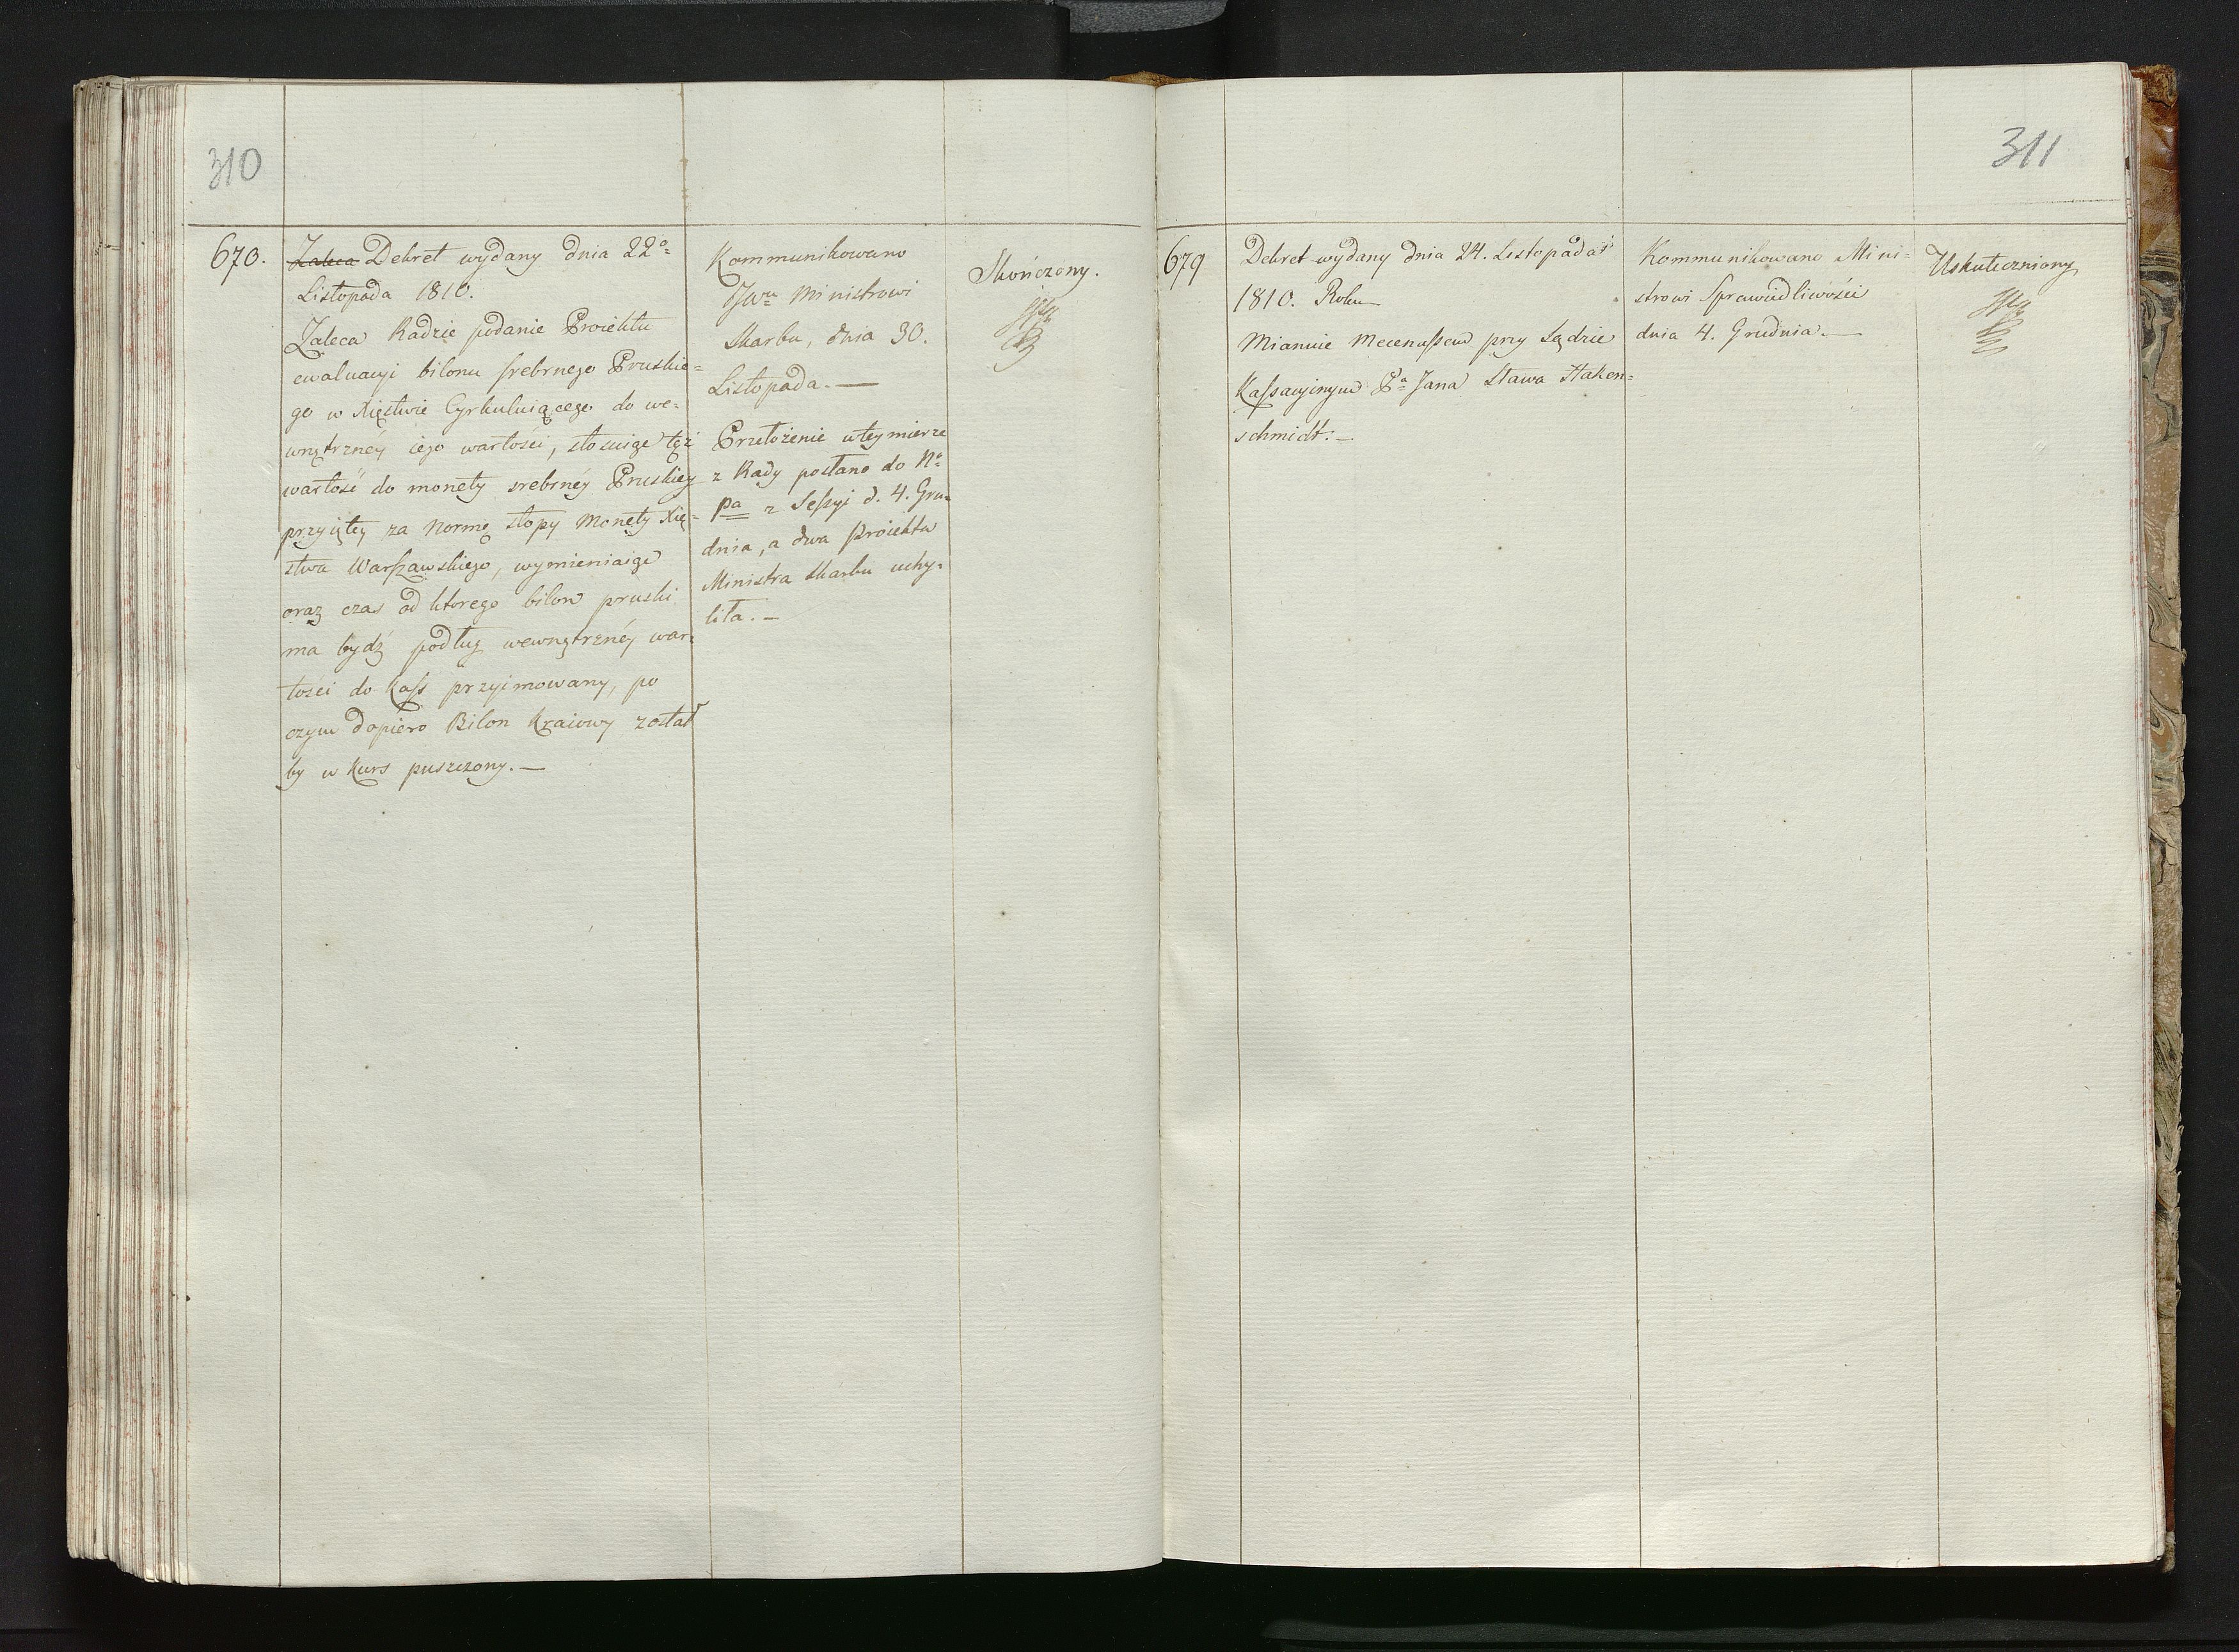 310
670.
Zaleca Dekret wydany dnia 22º
Listopada 1810.
Zaleca Radzie podanie Proiektu
ewaluacyi bilonu srebrnego Pruskie=
go w Xięstwie Cyrkuluiącego do we=
wnętrznéy iego wartości, stosuiąc tęż
wartość do monety srebrnéy Pruskiey
przyiętey za Normę stopy Monety Xię=
stwa Warszawskiego, wymieniaiąc
oraz czas od ktorego bilon pruski
ma bydź podług wewnętrznéy war=
tości do Kass przyimowany, po
czym dopiero Bilon Kraiowy został
by w Kurs puszczony.—
Kommunikowano
JWu Ministrowi
Skarbu, dnia 30.
Listopada.—
Przełożenie w tey mierze
z Rady posłano do No
pa z Sessyi d. 4. Gru=
dnia, a dwa proiekta
Ministra Skarbu uchy=
liła.—
Skończony.
311
679
Dekret wydany dnia 24. Listopada
1810. Roku—
Mianuie Mecenassem przy Sądzie
Kassacyinym Pa Jana Sława Staken=
schmidt.—
Kommunikowano Mini=
strowi Sprawiedliwości
dnia 4. Grudnia.—
Uskuteczniony